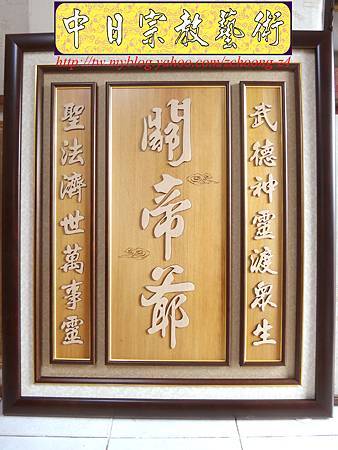 中日宗教藝術
http://tw.myblog.yahoo.com/zchoong-z4
武德神靈渡眾生
關帝爺
聖法濟世萬事靈